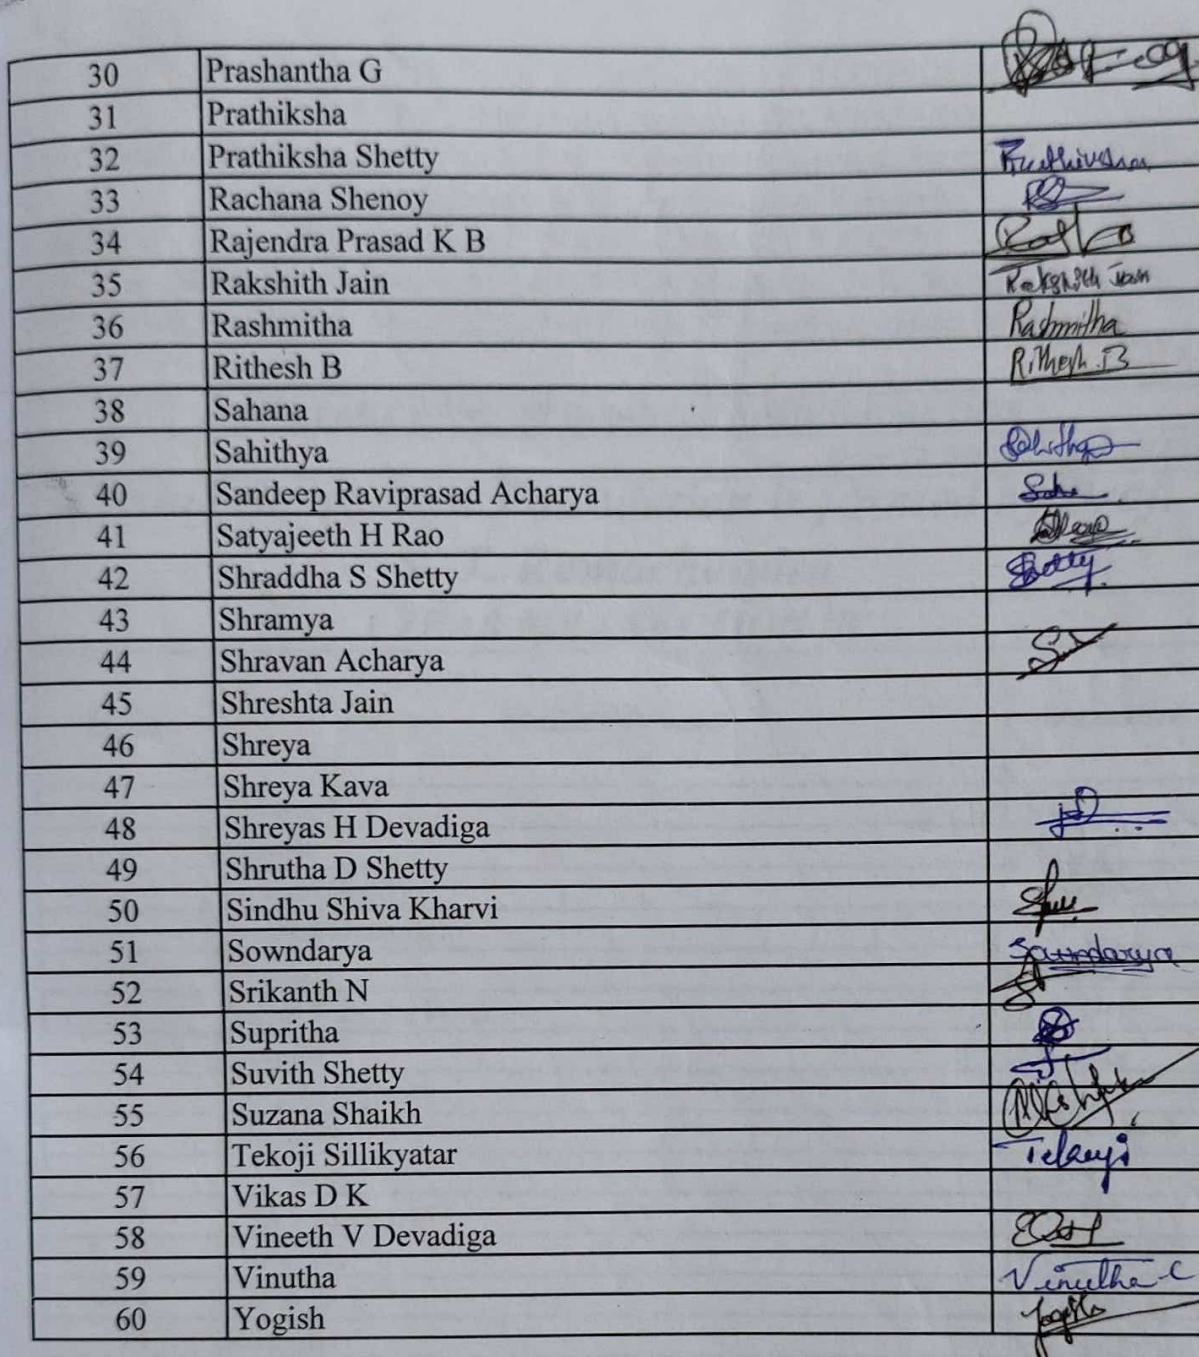 30 Prashantha G
31 Prathiksha
32 Prathiksha Shetty
33 Rachana Shenoy
34 Rajendra Prasad K B
35 Rakshith Jain Rakshith Jain
36 Rashmitha Rashmitha
37 Rithesh B Rithesh.B
38 Sahana
39 Sahithya Sahithya
40 Sandeep Raviprasad Acharya
41 Satyajeeth H Rao
42 Shraddha S Shetty Shetty
43 Shramya
44 Shravan Acharya
45 Shreshta Jain
46 Shreya
47 Shreya Kava
48 Shreyas H Devadiga
49 Shrutha D Shetty
50 Sindhu Shiva Kharvi
51 Sowndarya Sowndarya
52 Srikanth N
53 Supritha
54 Suvith Shetty
55 Suzana Shaikh
56 Tekoji Sillikyatar
57 Vikas D K
58 Vineeth V Devadiga
59 Vinutha Vinutha C
60 Yogish